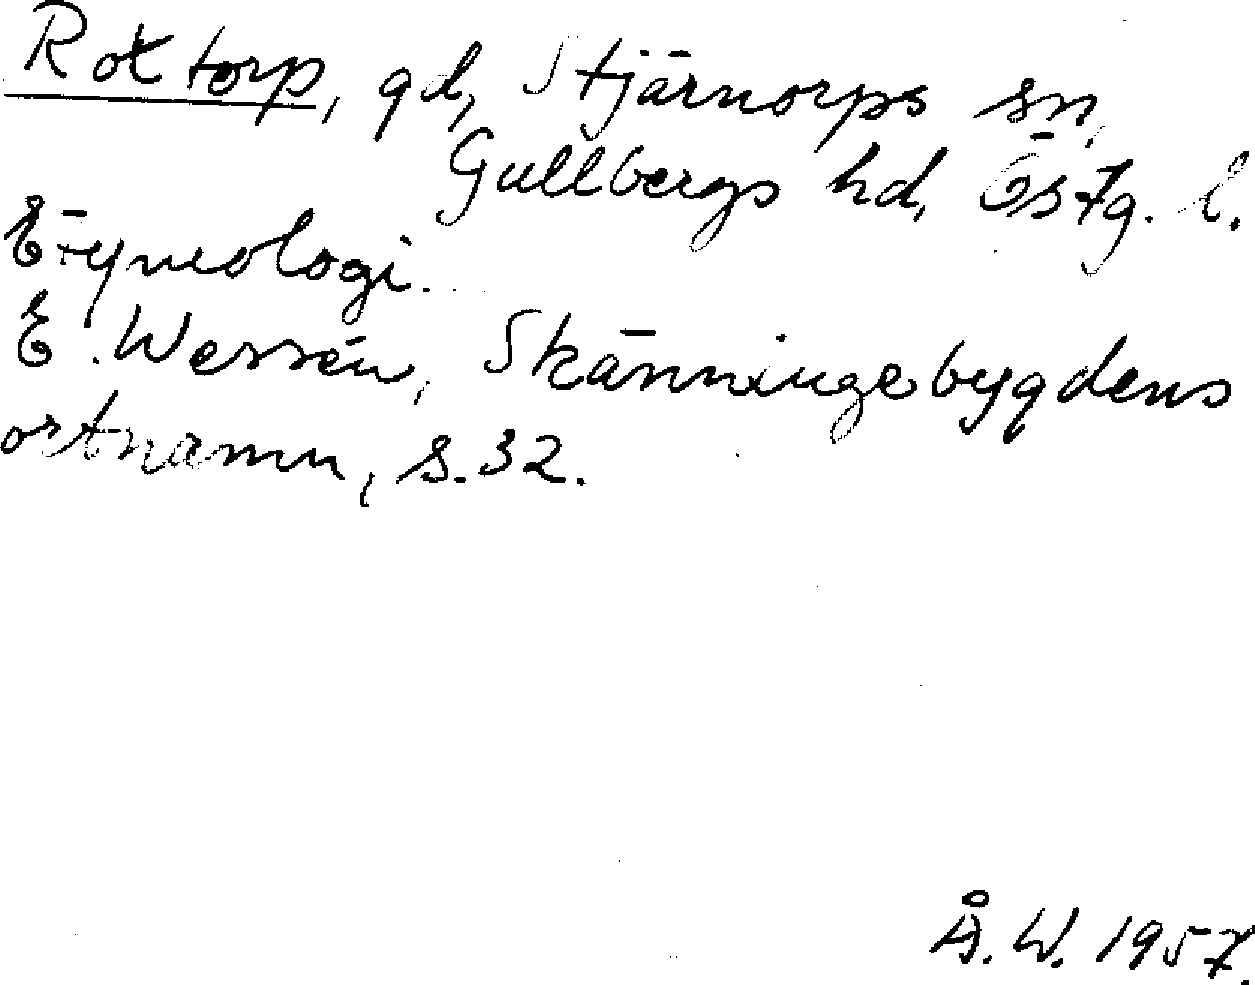 Rottorp, gd, Stjärnorps sn,
Gullbergs hd, Östg. l.
Etymologi.
E. Wessén, Skänningebygdens
ortnamn, s. 32.
Å. W. 1957.